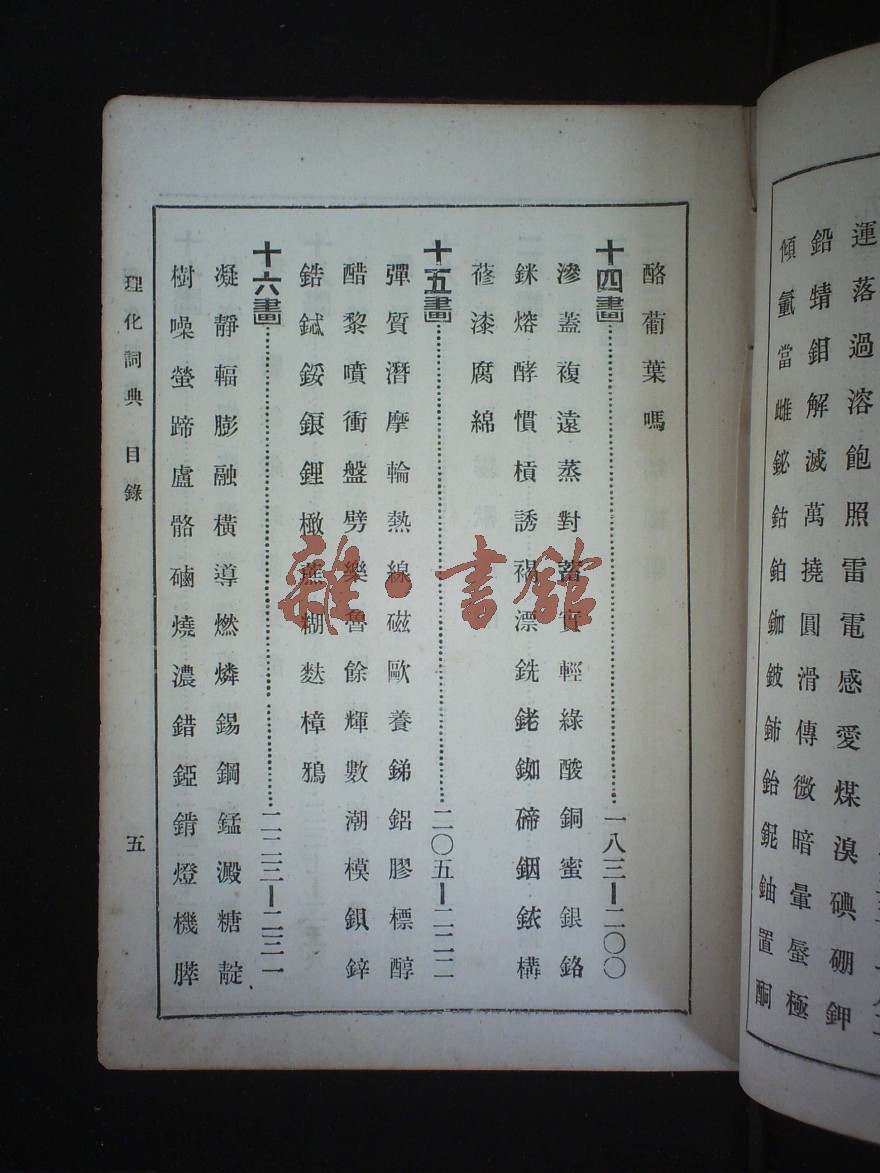 運落過溶飽照雷電感愛煤溴碘硼鉀
鉛蜻鉬解滅萬撓圓滑傳微暗暈蜃極
傾當雌鉍鈷鉑鉫鈹鈰鈶鈮鈾置酮
酪葡葉嗎
十四畫……一八三—二〇〇
滲蓋複遠蒸對蓄實輕綠酸銅蜜銀鉻
銤熔酵慣槓誘禍漂銑銠銣碲銦銥構
蓚漆腐綿
十五畫……二〇五—二二二
彈質潛摩輪熱線磁歐養銻鋁膠標醇
醋黎噴衝盤劈樂魯餘輝數潮模鋇鋅
鋯鋱鋖鋃鋰橄蕉糊麩樟鴉
十六畫……二二三—二三一
凝靜輻膨融橫導燃燐錫鋼錳澱糖靛
樹噪螢蹄盧骼燒濃錯錏錆燈機膵
理化詞典 目錄 五
雜·書館